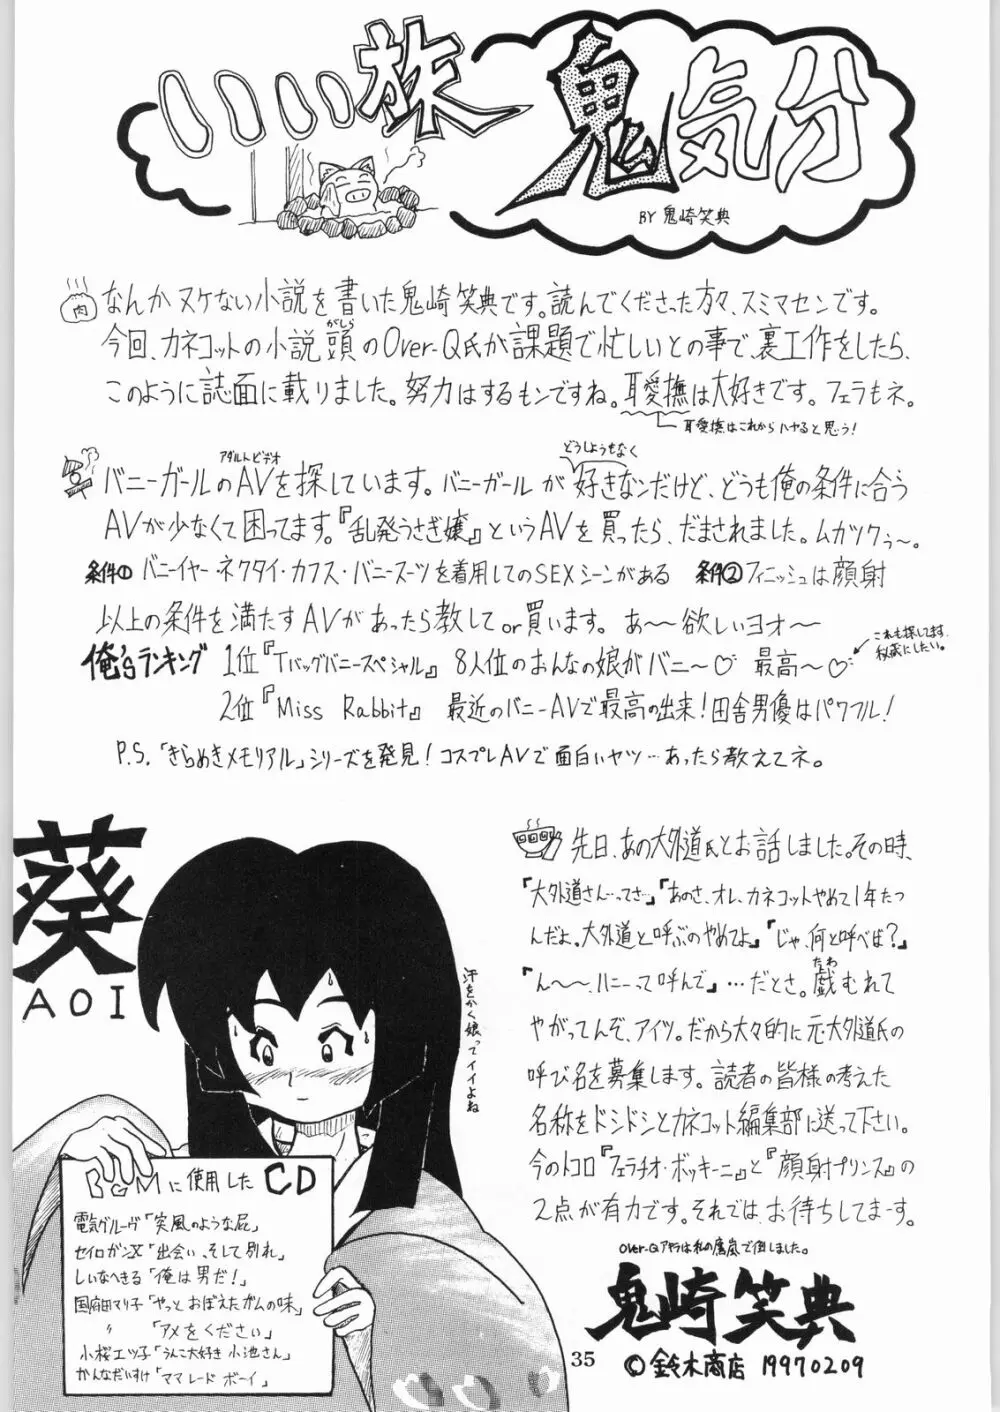 いい旅 鬼気分
BY 鬼崎笑典
肉
なんかヌケない小説を書いた鬼崎笑典です。読んでくださった方々、スミマセンです。
今回、カネコットの小説頭のOver-Q氏が課題で忙しいとの事で、裏工作をしたら、
がしら
このように誌面に載りました。努力はするもンですね。耳愛撫は大好きです。フェラもネ。
耳愛撫はこれからハヤると思う!
バニーガールのAVを探しています。バニーガールが好きなンだけど、どうも俺の条件に合う
アダルトビデオ
どうしようもなく
AVが少なくて困ってます。『乱発うさぎ嬢』というAVを買ったら、だまされました。ムカツクぅ〜。
条件① バニーイヤー・ネクタイ・カフス・バニースーツを着用してのSEXシーンがある 条件② フィニッシュは顔射
以上の条件を満たすAVがあったら教してor買います。あ〜欲しいヨオ〜
俺'sランキング 1位『Tバッグバニースペシャル』 8人位のおんなの娘がバニ〜♡ 最高〜♡
これも探してます。
秘蔵にしたい。
2位『Miss Rabbit』 最近のバニーAVで最高の出来!田舎男優はパワフル!
P.S.「きらめきメモリアル」シリーズを発見!コスプレAVで面白いヤツ…あったら教えてネ。
葵
AOI
汗をかく娘ってイイよね
BGMに使用したCD
電気グルーヴ「突風のような屁」
セイロガンX「出会い、そして別れ」
しいなへきる「俺は男だ!」
国府田マリ子「やっとおぼえたガムの味」
〃 「アメをください」
小桜エツ子「うんこ大好き小池さん」
かんなだいすけ「ママレードボーイ」
先日、あの大外道氏とお話しました。その時、
『大外道さん…てさ…』『あのさ、オレ、カネコットやめて1年たつ
んだよ。大外道と呼ぶのやめてよ。』『じゃ、何と呼べば?』
『ん〜〜、ハニーって呼んで』…だとさ。戯むれて
たわ
やがってんぞ、アイツ。だから大々的に元大外道氏の
呼び名を募集します。読者の皆様の考えた
名称をドシドシとカネコット編集部に送って下さい。
今のトコロ『フェラチオ・ボッキーニ』と『顔射プリンス』の
2点が有力です。それでは、お待ちしてまーす。
Over-Qアキラは私の鷹嵐で倒しました。
鬼崎笑典
©鈴木商店 19970209
35